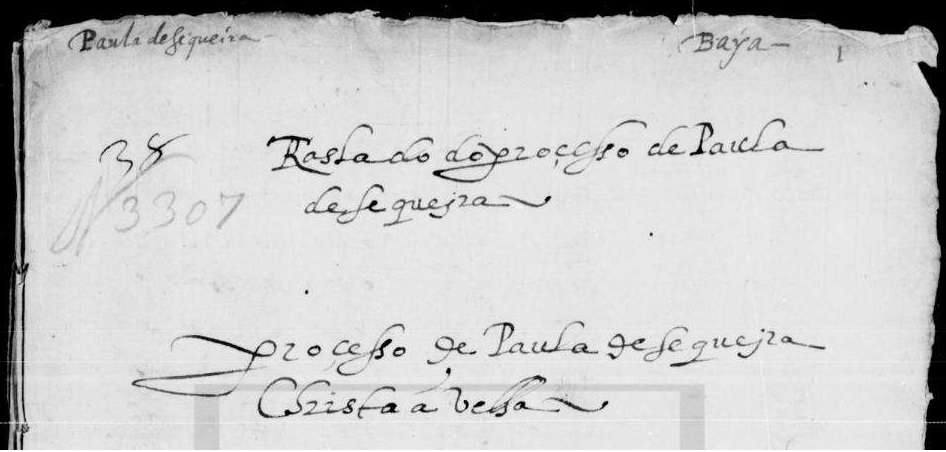 Paula de sequeira
Baya
1
38
Traslado do proçesso de Paula
de sequejra
N 3307
proçesso de Paula de sequejra
Christaã Velha